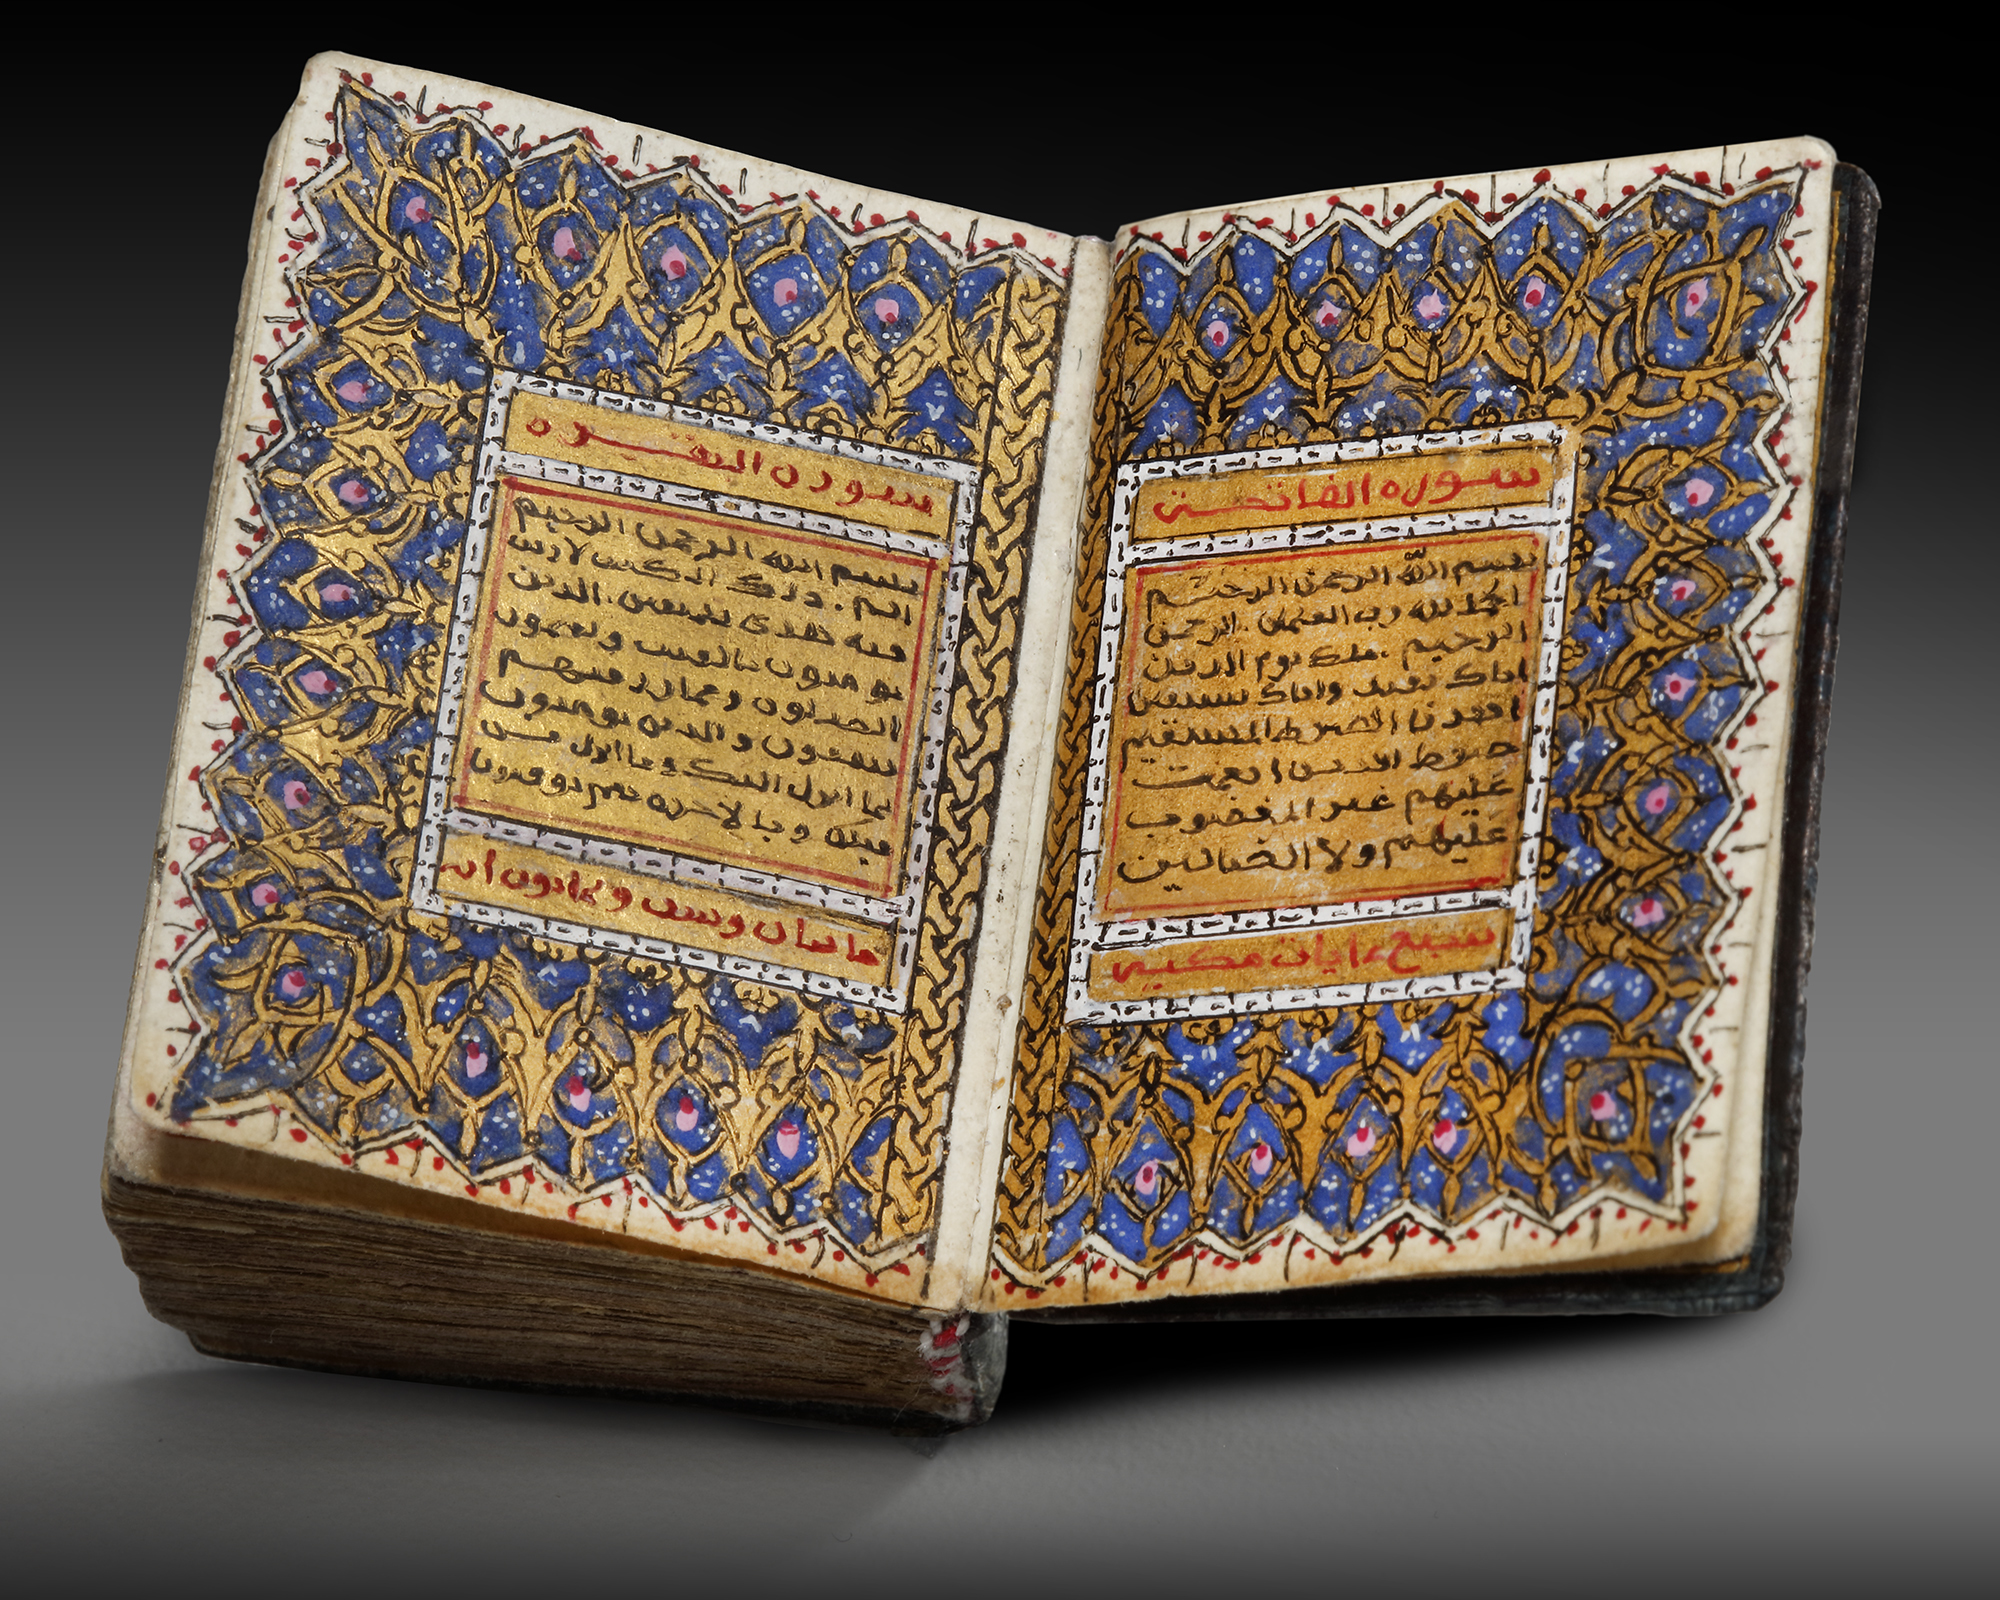 سوره الفاتحة
بسم الله الرحمن الرحيم
الحمد لله رب العلمين . الرحمن
الرحيم . ملك يوم الدين
اياك نعبد واياك نستعين
اهدنا الصرط المستقيم
صرط الذين انعمت
عليهم غير المغضوب
عليهم ولا الضالين
سبع ءايات مكية
سورة البقره
بسم الله الرحمن الرحيم
الم . ذلك الكتب لا ريب
فيه هدى للمتقين . الذين
يومنون بالغيب ويقيمون
الصلوة ومما رزقنهم
ينفقون والذين يومنون
بما انزل اليك وما انزل من
قبلك وبالاخره هم يوقنون
مايتان وست وثمانون ايه